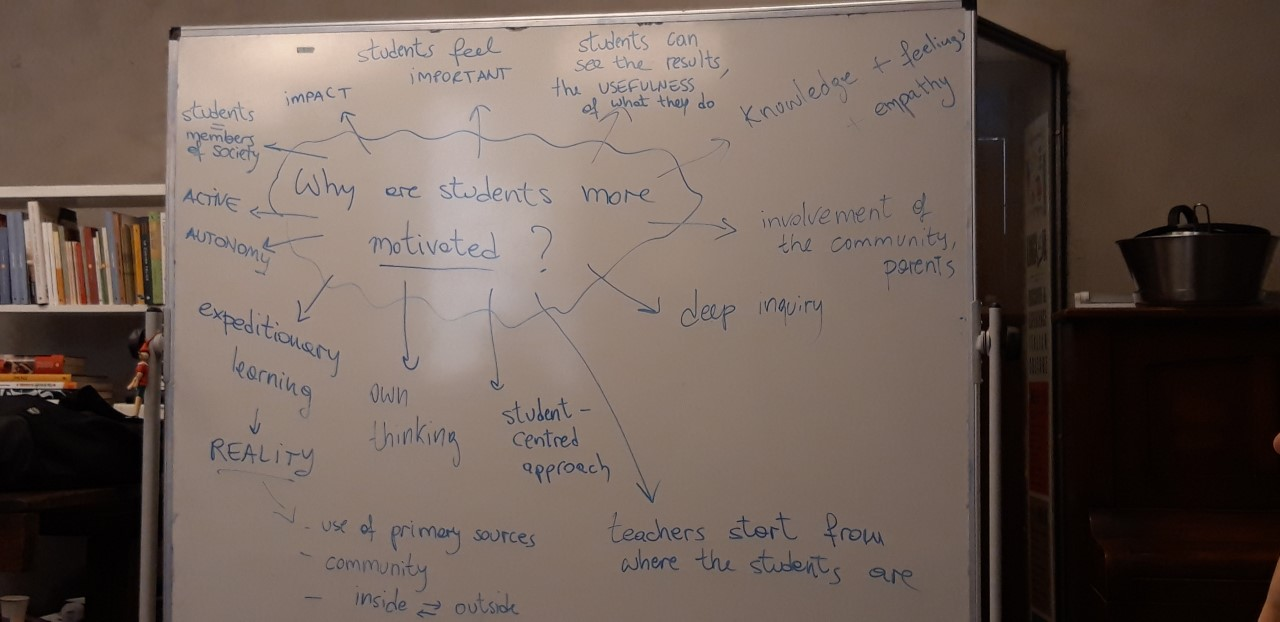 Why are students more
motivated ?
students feel
IMPORTANT
students can
see the results,
the USEFULNESS
of what they do
Knowledge + feelings
+ empathy
involvement of
the community,
parents
deep inquiry
teachers start from
where the students are
student-
centred
approach
own
thinking
expeditionary
learning
REALITY
- use of primary sources
- community
- inside ⇄ outside
AUTONOMY
ACTIVE
students
=
members
of society
IMPACT